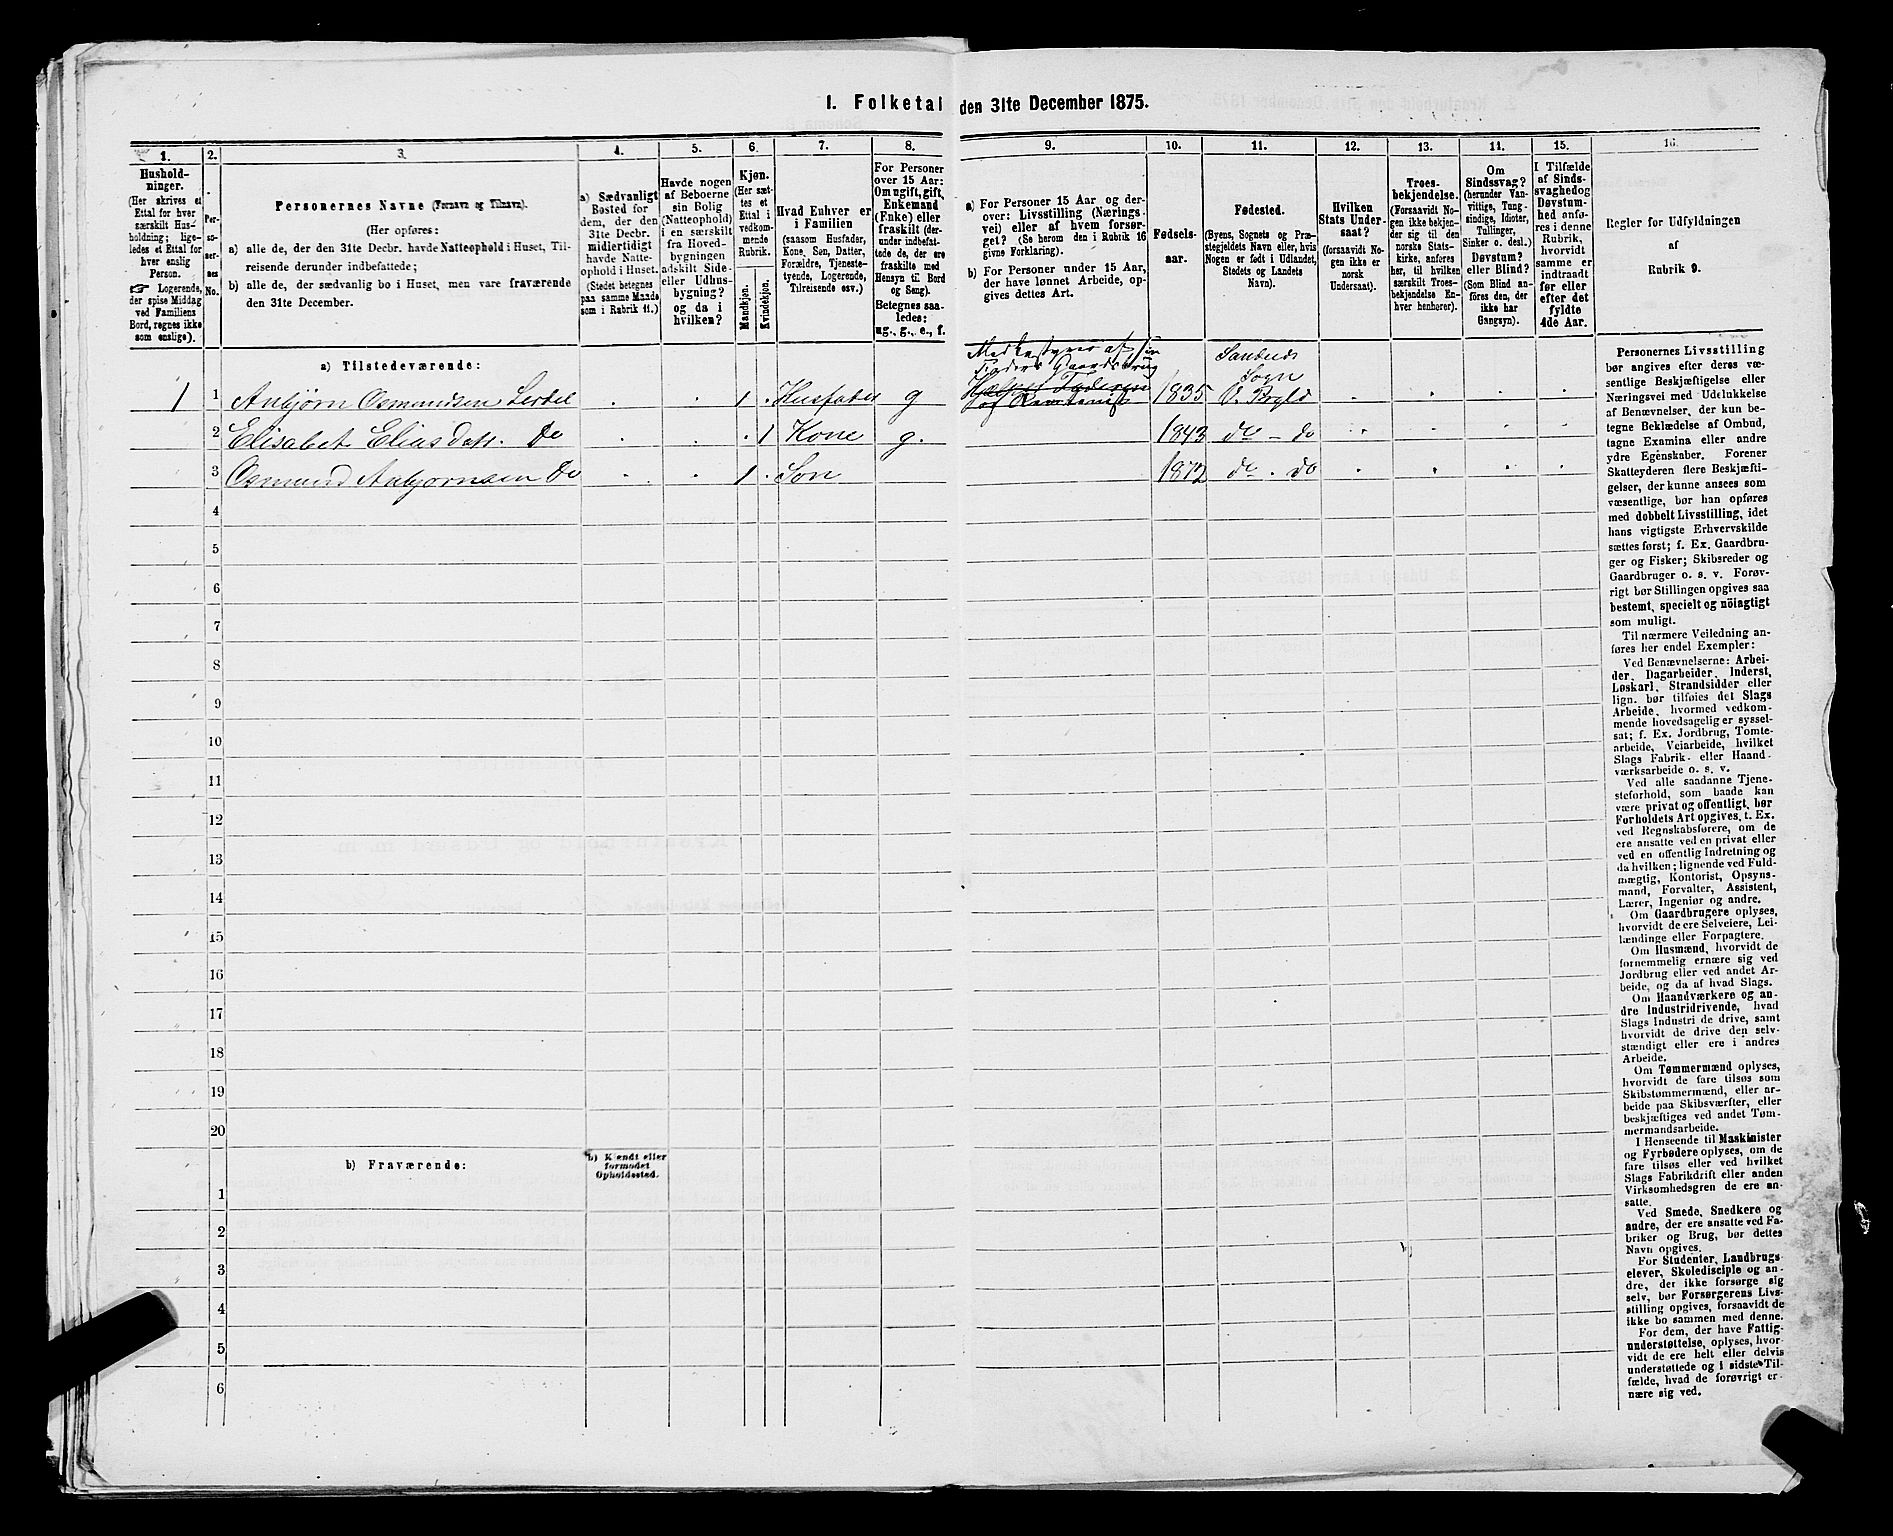 1. Folketal den 31te December 1875.
1.
Hushold-
ninger.
(Her skrives et
Ettal for hver
særskilt Hus-
holdning; lige-
ledes et Ettal for
hver enslig
Person.
☞ Logerende,
der spise Middag
ved Familiens
Bord, regnes ikke
som enslige).
2.
Per-
so-
ner-
nes
No.
3.
Personernes Navne (Fornavn og Tilnavn).
(Her opføres:
a) alle de, der den 31te Decbr. havde Natteophold i Huset, Til-
reisende derunder indbefattede;
b) alle de, der sædvanlig bo i Huset, men vare fraværende
den 31te December.
4.
a) Sædvanligt
Bosted for
dem, der den
31te Decbr.
midlertidigt
havde Natte-
ophold i Huset.
(Stedet betegnes
paa samme Maade
som i Rubrik 11.)
5.
Havde nogen
af Beboerne
sin Bolig
(Natteophold)
i en særskilt
fra Hoved-
bygningen
adskilt Side-
eller Udhus-
bygning?
og da i
hvilken?
6.
Kjøn.
(Her sæt-
tes et
Ettal i
vedkom-
mende
Rubrik.
Mandkjøn.
Kvindekjøn.
7.
Hvad Enhver er
i Familien
(saasom Husfader,
Kone, Søn, Datter,
Forældre, Tjeneste-
tyende, Logerende,
Tilreisende osv.)
8.
For Personer
over 15 Aar:
Om ugift, gift,
Enkemand
(Enke) eller
fraskilt (der-
under indbefat-
tede de, der ere
fraskilte med
Hensyn til Bord
og Seng).
Betegnes saa-
ledes:
ug., g., e., f.
9.
a) For Personer 15 Aar og der-
over: Livsstilling (Nærings-
vei) eller af hvem forsør-
get? (Se herom den i Rubrik 16
givne Forklaring).
b) For Personer under 15 Aar,
der have lønnet Arbeide, op-
gives dettes Art.
10.
Fødsels-
aar.
11.
Fødested.
(Byens, Sognets og Præ-
stegjeldets Navn eller, hvis
Nogen er født i Udlandet,
Stedets og Landets
Navn).
12.
Hvilken
Stats Under-
saat?
(forsaavidt No-
gen ikke er
norsk
Undersaat).
13.
Troes-
bekjendelse.
(Forsaavidt No-
gen ikke bekjen-
der sig til den
norske Stats-
kirke, anføres
her, til hvilken
særskilt Troes-
bekjendelse En-
hver henhører).
14.
Om
Sindssvag?
(herunder Van-
vittige, Tung-
sindige, Idioter,
Tullinger,
Sinker o. desl.)
Døvstum?
eller Blind?
(Som Blind an-
føres den, der
ikke har
Gangsyn).
15.
I Tilfælde
af Sinds-
svaghed og
Døvstum-
hed anfø-
res i denne
Rubrik,
hvorvidt
samme er
indtraadt
før eller
efter det
fyldte
4de Aar.
16.
Regler for Udfyldningen
af
Rubrik 9.
a) Tilstedeværende:
Medbestyrer af sin
Faders Gaardsbrug
Sandeids
Sogn
1 1 Anbjørn Osmundsen . . 1 . Husfader g 1835 . . . .
2 Elisabet Eliasdatt. Do . . . 1 Kone g. 1843 do - do . . . .
3 Osmund Anbjørnsen Do . . 1 . Søn 1872 do . do . . . .
4
5
6
7
8
9
10
11
12
13
14
15
16
17
18
19
20
b) Fraværende:
b) Kjendt eller
formodet
Opholdssted.
1
2
3
4
5
6
Personernes Livsstilling
bør angives efter deres væ-
sentlige Beskjæftigelse eller
Næringsvei med Udelukkelse
af Benævnelser, der kun be-
tegne Beklædelse af Ombud,
tagne Examina eller andre
ydre Egenskaber. Forener
Skatteyderen flere Beskjæfti-
gelser, der kunne ansees som
væsentlige, bør han opføres
med dobbelt Livsstilling, idet
hans vigtigste Erhvervskilde
sættes først; f. Ex. Gaardbru-
ger og Fisker; Skibsreder og
Gaardbruger o. s. v. Forøv-
rigt bør Stillingen opgives saa
bestemt, specielt og nöiagtigt
som muligt.
Til nærmere Veiledning an-
føres her endel Exempler:
Ved Benævnelserne: Arbei-
der, Dagarbeider, Inderst,
Løskarl, Strandsidder eller
lign. bør tilføies det Slags
Arbeide, hvormed vedkom-
mende hovedsagelig er syssel-
sat; f. Ex. Jordbrug, Tomte-
arbeide, Veiarbeide, hvilket
Slags Fabrik- eller Haand-
værksarbeide o. s. v.
Ved alle saadanne Tjene-
steforhold, som baade kan
være privat og offentligt, bør
Forholdets Art opgives, t. Ex.
ved Regnskabsførere, om de
ere ansatte ved en privat eller
ved en offentlig Indretning og
da hvilken; lignende ved Fuld-
mægtig, Kontorist, Opsyns-
mand, Forvalter, Assistent,
Lærer, Ingeniør og andre.
Om Gaardbrugere oplyses,
hvorvidt de ere Selveiere, Lei-
lændinge eller Forpagtere.
Om Husmænd, hvorvidt de
fornemmelig ernære sig ved
Jordbrug eller ved andet Ar-
beide, og da af hvad Slags.
Om Haandværkere og an-
dre Industridrivende, hvad
Slags Industri de drive, samt
hvorvidt de drive den selv-
stændigt eller ere i andres
Arbeide.
Om Tømmermænd oplyses,
hvorvidt de fare tilsøs som
Skibstømmermænd, eller ar-
beide paa Skibsværfter, eller
beskjæftiges ved andet Tøm-
mermandsarbeide.
I Henseende til Maskinister
og Fyrbødere oplyses, om de
fare tilsøs eller ved hvilket
Slags Fabrikdrift eller anden
Virksomhedsgren de ere an-
satte.
Ved Smede, Snedkere og
andre, der ere ansatte ved Fa-
briker og Brug, bør dettes
Navn opgives.
For Studenter, Landbrugs-
elever, Skoledisciple og an-
dre, der ikke forsørge sig
selv, bør Forsørgerens Livs-
stilling opgives, forsaavidt de
ikke bo sammen med denne.
For dem, der have Fattig-
understøttelse, oplyses, hvor-
vidt de ere helt eller delvis
understøttede og i sidste Til-
fælde, hvad de forøvrigt er-
nære sig ved.